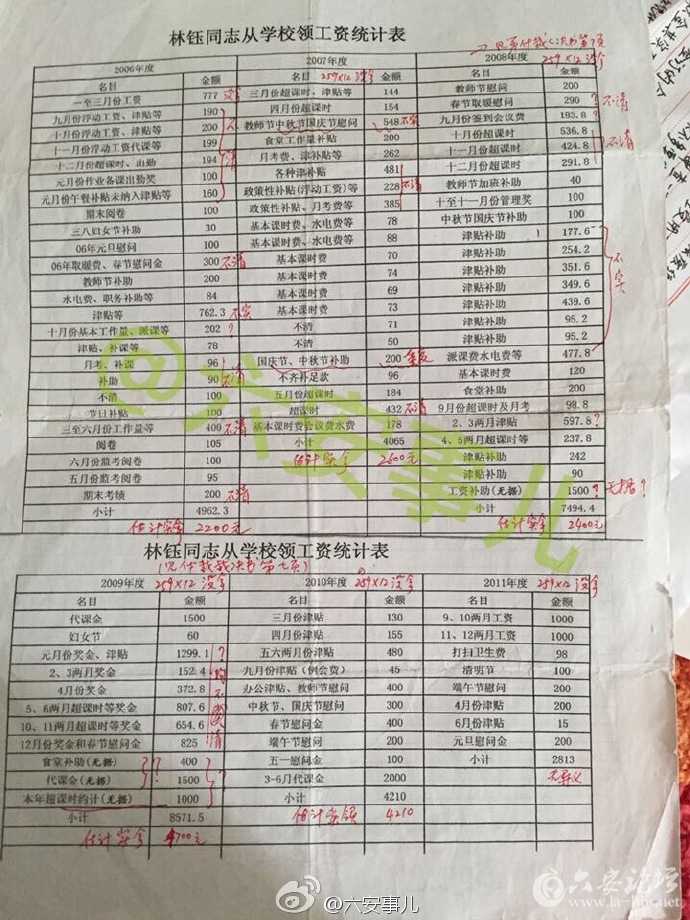 林钰同志从学校领工资统计表
2006年度 2007年度 2008年度
259×12 没拿 259×12 没拿
名目 金额 名目 金额 名目 金额
一至三月份工资 777 三月份超课时、津贴等 144 教师节慰问 200
九月份浮动工资、津贴等 190 四月份超课时 154 春节取暖慰问 290 ? 不清
十月份浮动工资、津贴等 200 教师节中秋节国庆节慰问 548 不实 九月份签到会议费 193.8 ?
十一月份浮动工资代课等 199 食堂工作量补贴 200 十月份超课时 536.8
十二月份超课时、出勤 194 月考费、津补贴等 262 十一月份超课时 424.8 不清
元月份作业备课出勤奖 100 各种津补贴 481 十二月份超课时 291.8
元月份午餐补贴未纳入津贴等 160 政策性补贴(浮动工资)等 228 不清 教师节加班补助 40
期末阅卷 100 政策性补贴、月考费等 385 十至十一月份管理奖 100
三八妇女节补助 30 基本课时费、水电费等 78 中秋节国庆节补助 100
06年元旦慰问 100 基本课时费、水电费等 88 津贴补助 177.6
06年取暖费、春节慰问金 300 不清 基本课时费 70 津贴补助 254.2
教师节补助 200 基本课时费 74 津贴补助 351.6
水电费、职务补助等 84 基本课时费 69 津贴补助 349.6 不实
津贴等 762.3 不实 基本课时费 73 津贴补助 439.6
十月份基本工作量、派课等 202 ? 不清 71 津贴补助 95.2
津贴、补课等 78 不清 50 津贴补助 95.2
月考、补课 96 国庆节、中秋节补助 200 派课费水电费等 477.8
补助 90 不清 不齐补足款 96 基本课时费 120
不清 100 五月份超课时 184 食堂补助 200
节日补贴 100 超课时 432 不清 9月份超课时及月考 98.8
三至六月份工作量等 400 不清 基本课时费会议费水费 178 2、3两月津贴 597.8 ?
阅卷 105 小计 4065 4、5两月超课时等 237.8
六月份监考阅卷 100 估计实拿 2600元 津贴补助 242
五月份监考阅卷 95 津贴补助 90
期末考绩 200 不清 工资补助(无据) 1500 ? 无据?
小计 4962.3 小计 7494.4
估计实拿 2200元 估计实拿 2400元
林钰同志从学校领工资统计表
(见仲裁裁决书第七项)
2009年度 259×12 没拿 2010年度 259×12 没拿 2011年度 259×12 没拿
名目 金额 名目 金额 名目 金额
代课金 1500 三月份津贴 130 9、10两月工资 1000
妇女节 60 四月份津贴 155 11、12两月工资 1000
元月份奖金、津贴 1299.1 ? 五六两月份津贴 480 打扫卫生费 98
2、3两月奖金 152.4 均 九月份津贴(例会费) 45 清明节 100
4月份奖金 372.8 不 办公津贴、教师节慰问 400 端午节慰问 200
5、6两月超课时等奖金 807.6 中秋节、国庆节慰问 300 4月份津贴 200
10、11两月超课时等奖金 654.6 春节慰问金 400 6月份津贴 15
12月份奖金和春节慰问金 825 清 端午节慰问 200 元旦慰问金 200
食堂补助(无据) 400 ? 五一慰问金 100 小计 2813
代课金(无据) 1500 ? 3-6月代课金 2000 无异议
本年超课时约计(无据) 1000 小计 4210
小计 8571.5 估计实领 4210
估计实拿 4700元
@六安事儿
@六安事儿
六安论坛
www.la-bbs.net